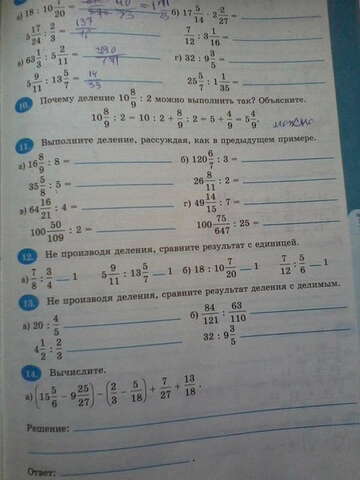 а) 18 : 10 7/20 =
б) 17 5/14 · 2 2/27
5 17/24 : 2/3 = 137/
7/12 : 3 1/16
в) 63 1/3 : 5 2/11 =
г) 32 : 9 3/5 =
5 9/11 : 13 5/7 = 14/33
25 5/7 : 1 1/35
10. Почему деление 10 8/9 : 2 можно выполнить так? Объясните.
10 8/9 : 2 = 10 : 2 + 8/9 : 2 = 5 + 4/9 = 5 4/9. можно
11. Выполните деление, рассуждая, как в предыдущем примере.
а) 16 8/9 : 8 =
б) 120 6/7 : 3 =
35 5/8 : 5 =
26 8/11 : 2 =
в) 64 16/21 : 4 =
г) 49 14/15 : 7 =
100 50/109 : 2 =
100 75/647 : 25 =
12. Не производя деления, сравните результат с единицей.
а) 7/8 : 3/4 __ 1 5 9/11 : 13 5/7 __ 1 б) 18 : 10 7/20 __ 1 7/12 : 5/6 __ 1
13. Не производя деления, сравните результат деления с делимым.
а) 20 : 4/5
б) 84/121 : 63/110
4 1/2 : 2/3
32 : 9 3/5
14. Вычислите.
а) (15 5/6 − 9 25/27) − (2/3 − 5/18) + 7/27 + 13/18.
Решение:
Ответ: